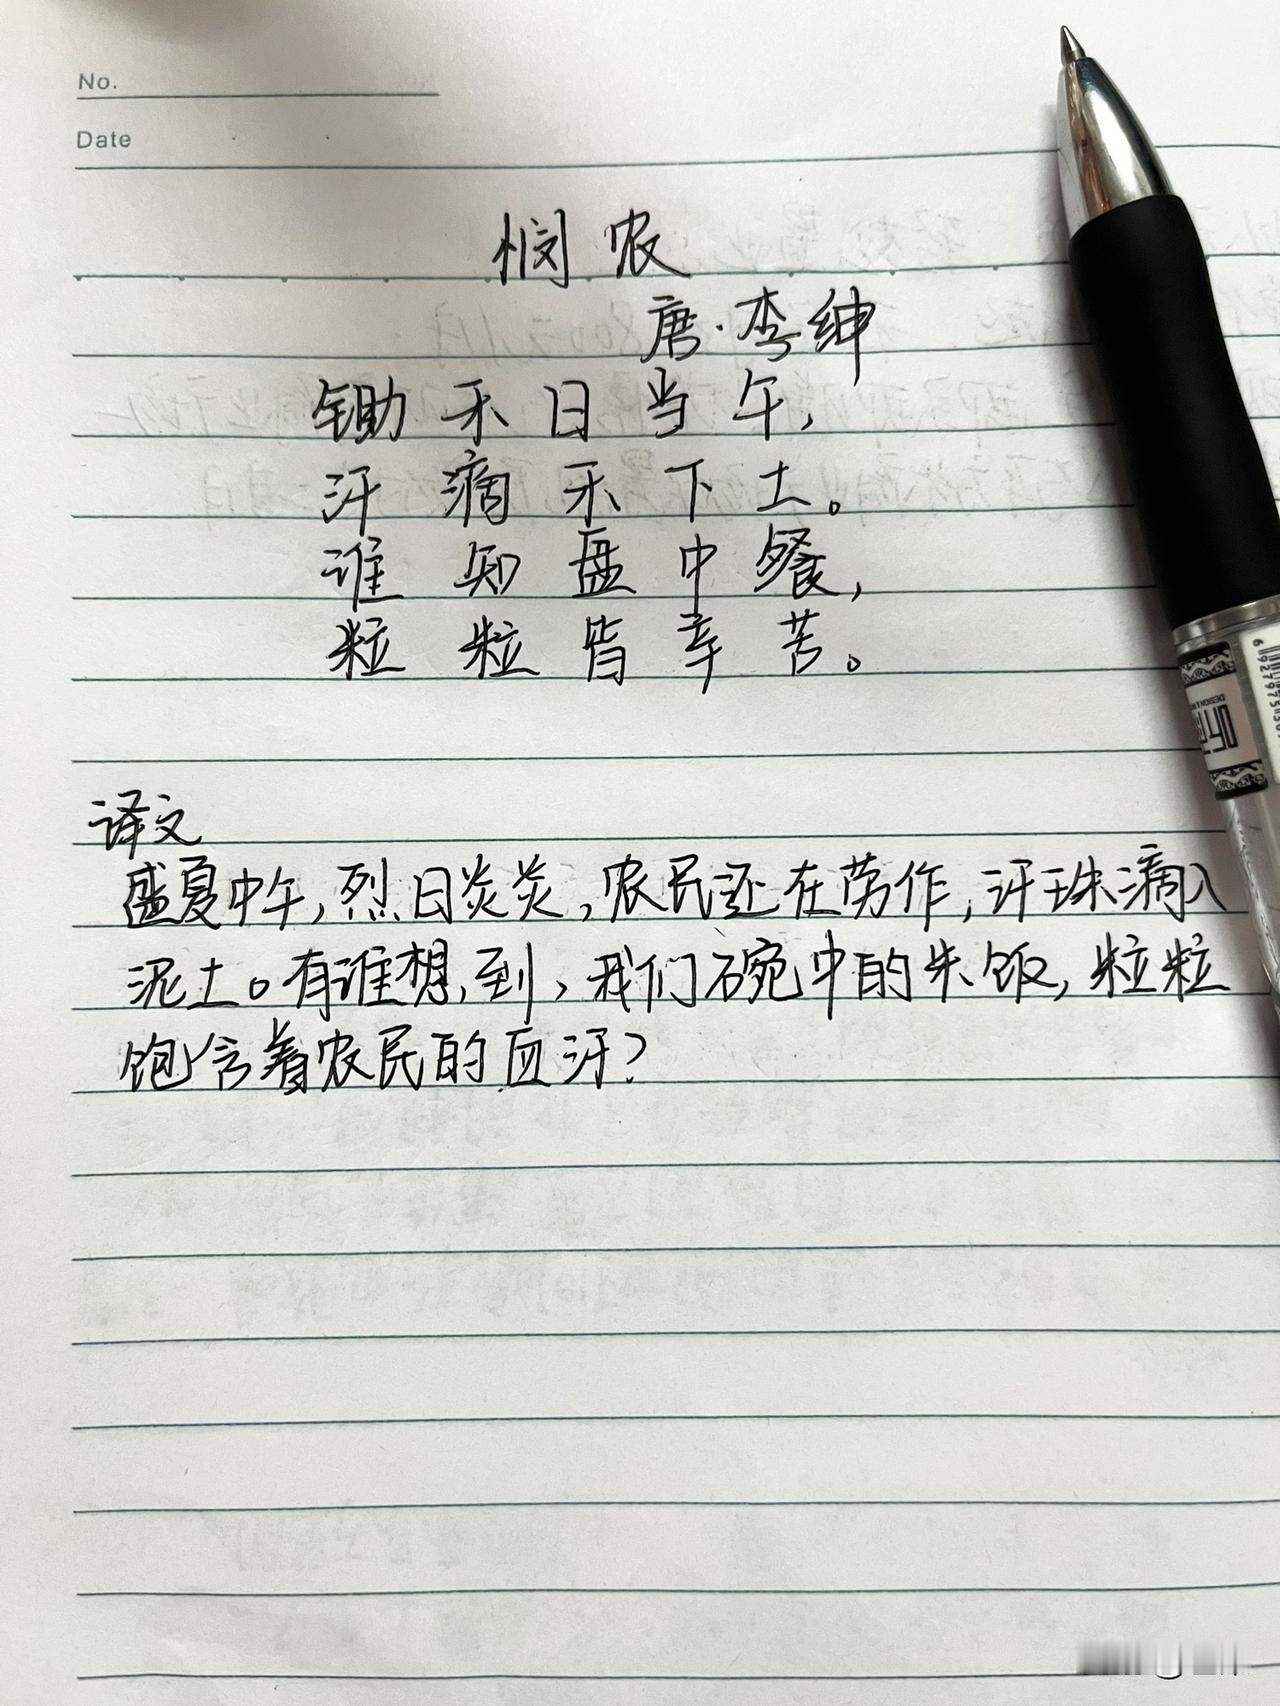 No.
Date
悯农
唐·李绅
锄禾日当午,
汗滴禾下土。
谁知盘中餐,
粒粒皆辛苦。
译文
盛夏中午,烈日炎炎,农民还在劳作,汗珠滴入
泥土。有谁想到,我们碗中的米饭,粒粒
饱含着农民的血汗?